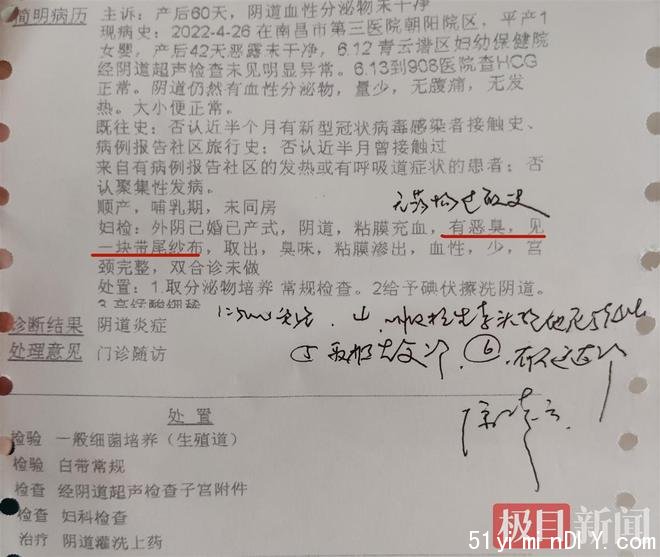 简明病历 主诉：产后60天，阴道血性分泌物未干净
现病史：2022-4-26 在南昌市第三医院朝阳院区，平产1
女婴，产后42天恶露未干净，6.12 青云谱区妇幼保健院
经阴道超声检查未见明显异常。6.13到908医院查HCG
正常。阴道仍然有血性分泌物，量少，无腹痛，无发
热。大小便正常。
既往史：否认近半个月有新型冠状病毒感染者接触史、
病例报告社区旅行史：否认近半月曾接触过
来自有病例报告社区的发热或有呼吸道症状的患者；否
认聚集性发病。
无药物过敏史
顺产，哺乳期，未同房
妇检：外阴已婚已产式，阴道，粘膜充血，有恶臭，见
一块带尾纱布，取出，臭味，粘膜渗出，血性，少，宫
颈完整，双合诊未做
处置：1.取分泌物培养 常规检查。2给予碘伏擦洗阴道。
诊断结果 阴道炎症
处理意见 门诊随访
处置
检验 一般细菌培养（生殖道）
检验 白带常规
检查 经阴道超声检查子宫附件
检查 妇科检查
治疗 阴道灌洗上药
极目新闻
51yiminDIY.com